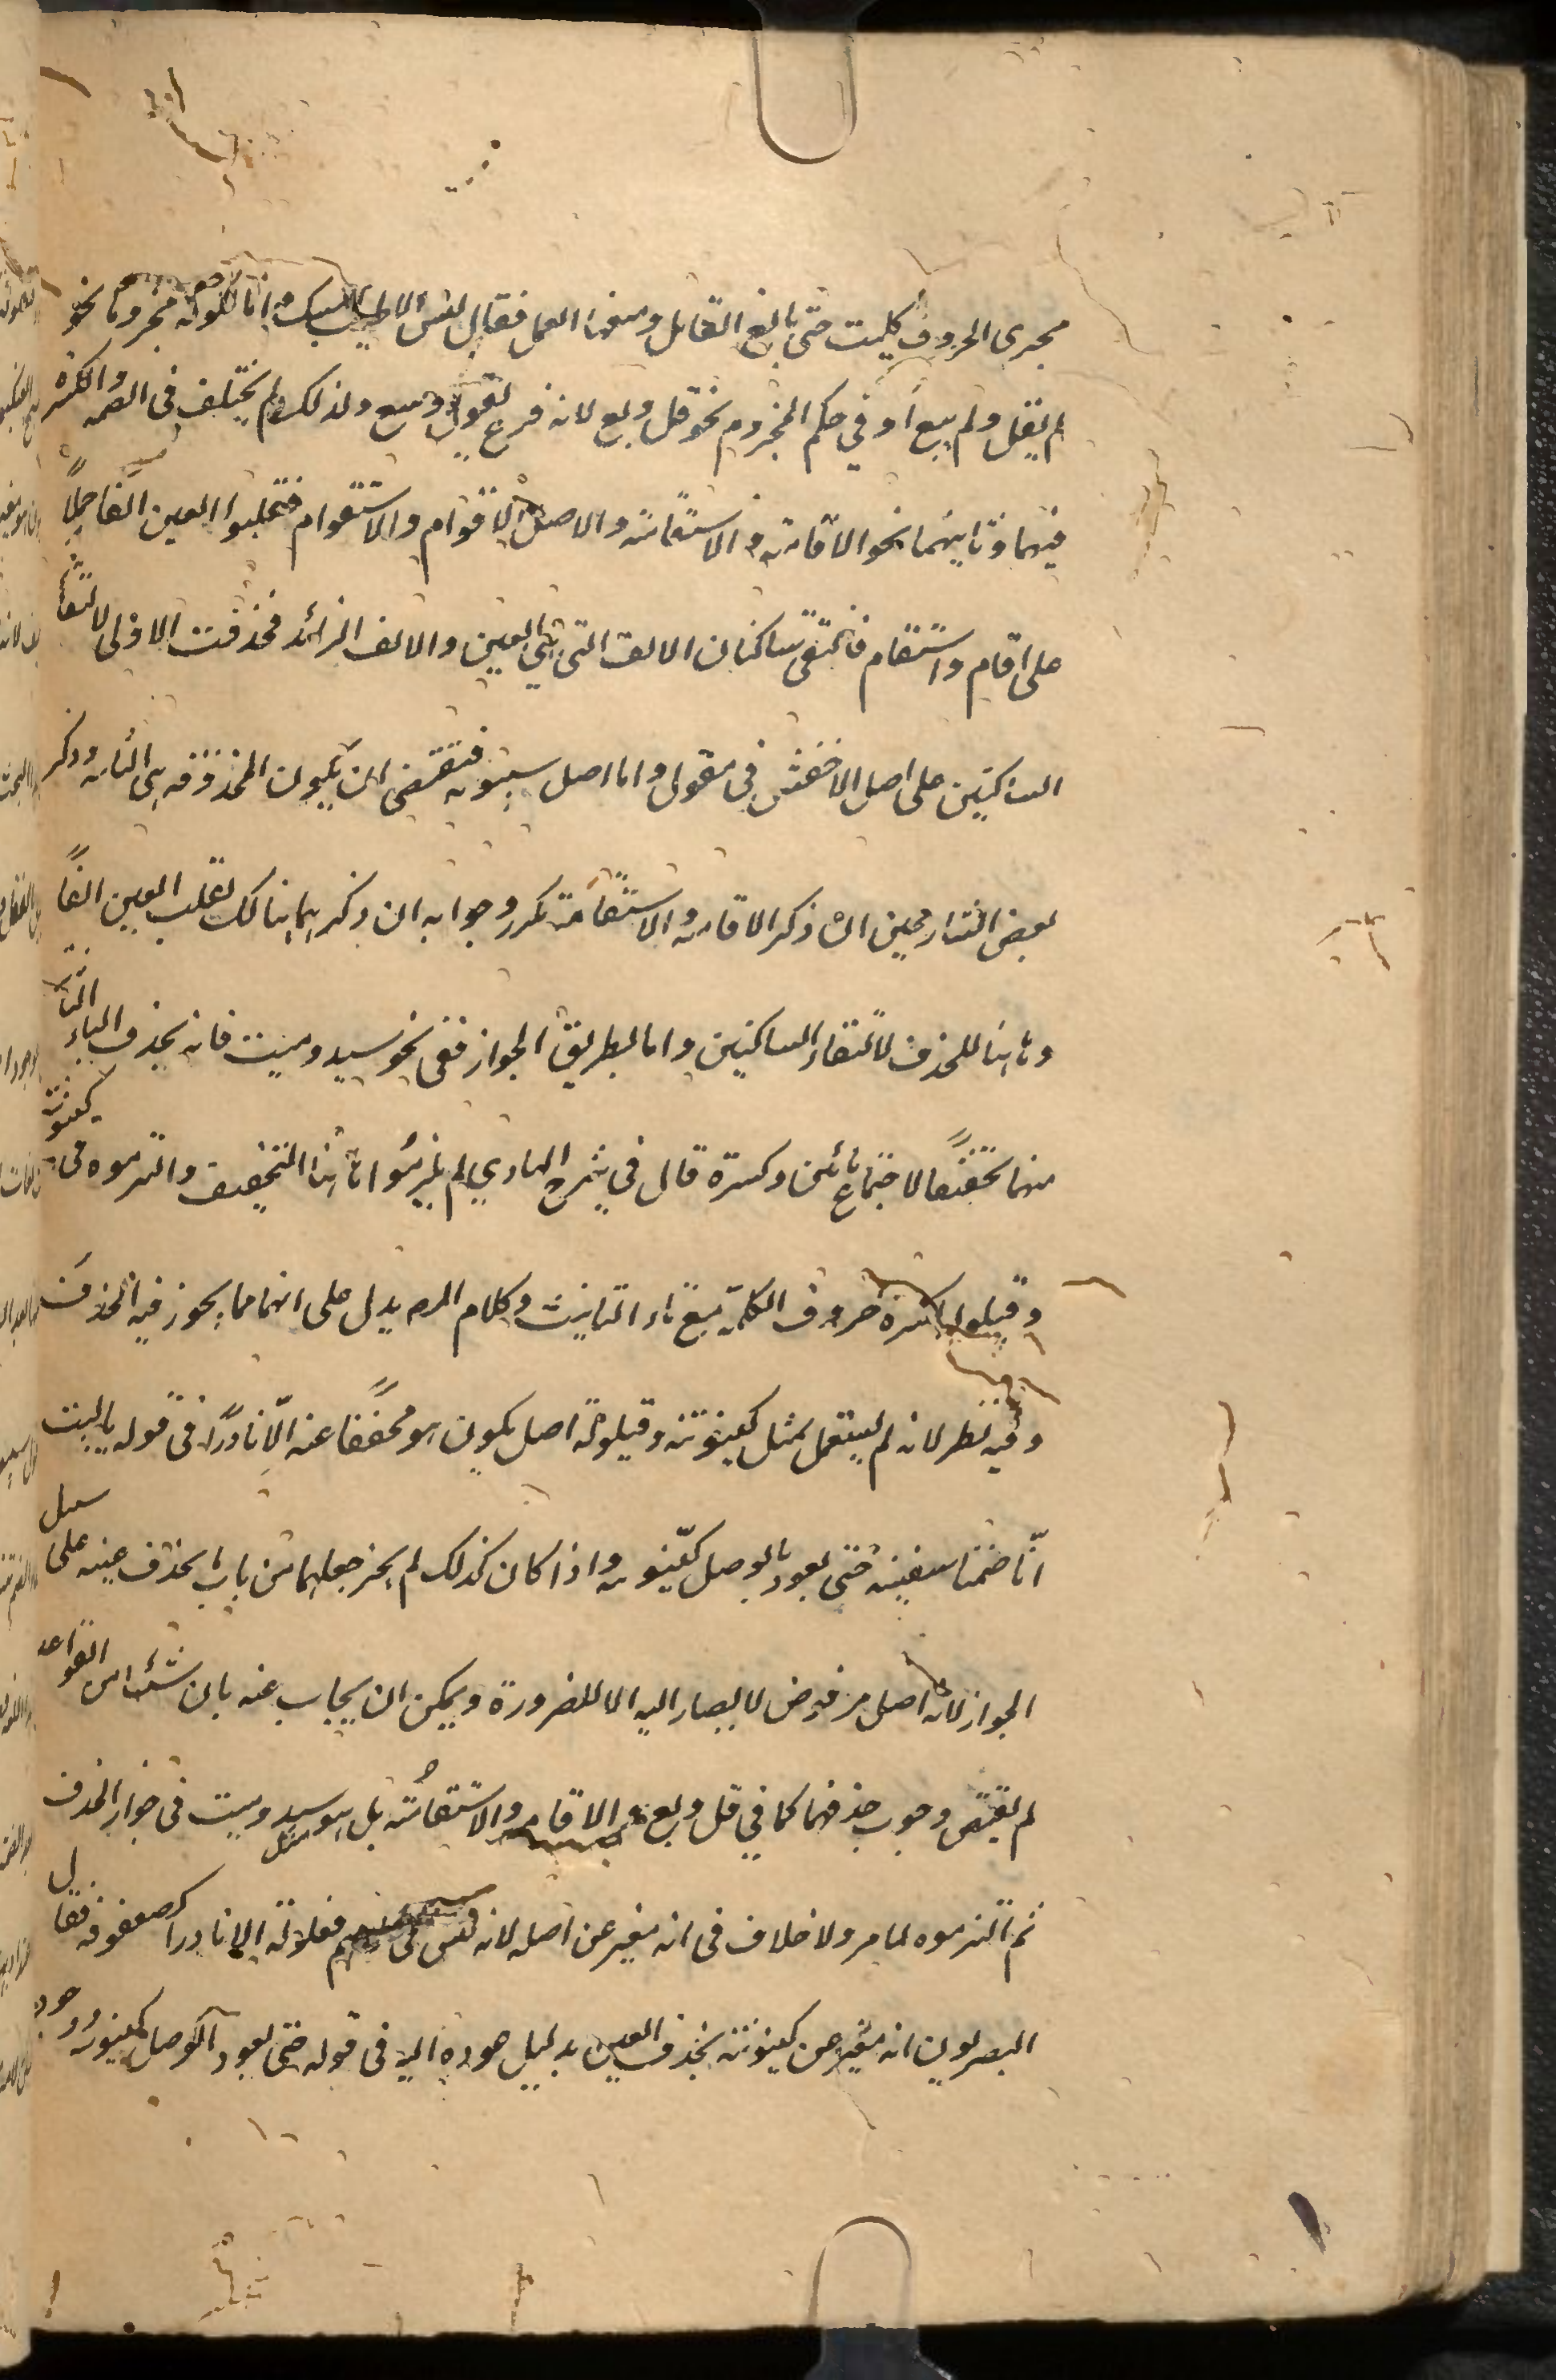 مجرى الحروف كليت حتى بالغ القائل ومنعها العمل فقال ليس الا الطيب المسك انما لكونه مجزوما نحو
لم يقل ولم يبع او في حكم المجزوم نحو قل وبع لانه فرع لتقول وتبيع ولذلك لم يختلف في الضمه والكسره
فيهما وثانيهما نحو الاقامة والاستقامة والاصل الاقوام والاستقوام فتقلبوا العين الفا حملا
على اقام واستقام فالتقى ساكنان الالف التى هي العين والالف الزائد فحذفت الاولى لالتقاء
الساكنين على اصل الاخفش في مقول واما اصل سيبويه فتقتضى ان يكون المحذوفه هي الثانيه وذكر
بعض الشارحين ان ذكر الاقامة والاستقامة تكرر وجوابه ان ذكرهما هنالك لقلب العين الفا
وهاهنا للحذف لالتقاء الساكنين واما بطريق الجواز ففى نحو سيد وميت فانه يحذف الياء الثانية
منهما تخفيفا لاجتماع يائين وكسرة قال في شرح الهادي لم يلزموا هاهنا التخفيف والتزموه في كينونة
وقيلولة لكثرة حروف الكلمة مع تاء التانيث وكلام المص يدل على انهما مما يجوز فيه الحذف
وفيه نظر لانه لم يستعمل لمثل كينونة وقيلولة اصل يكون هو مخففا عنه الا نادرا في قوله يا ليت
انا ضمنا سفينه حتى يعود الوصل كينونه واذا كان كذلك لم يجز جعلهما من باب ما يحذف عينه على سبيل
الجواز لانه اصل مرفوض لا يصار اليه الا للضرورة ويمكن ان يجاب عنه بان شيئا من القواعد
لم يقتض وجوب حذفهما كما في قل وبع والاقامة والاستقامة بل هو مثل سيد وميت في جواز الحذف
ثم التزموه لما مر ولا خلاف في انه مغير عن اصله لانه ليس في فعلولة الا نادرا كصعفوقة فقال
البصريون انه مغير عن كينونة بحذف العين بدليل عوده اليه في قوله حتى يعود الوصل كينونه ووجود